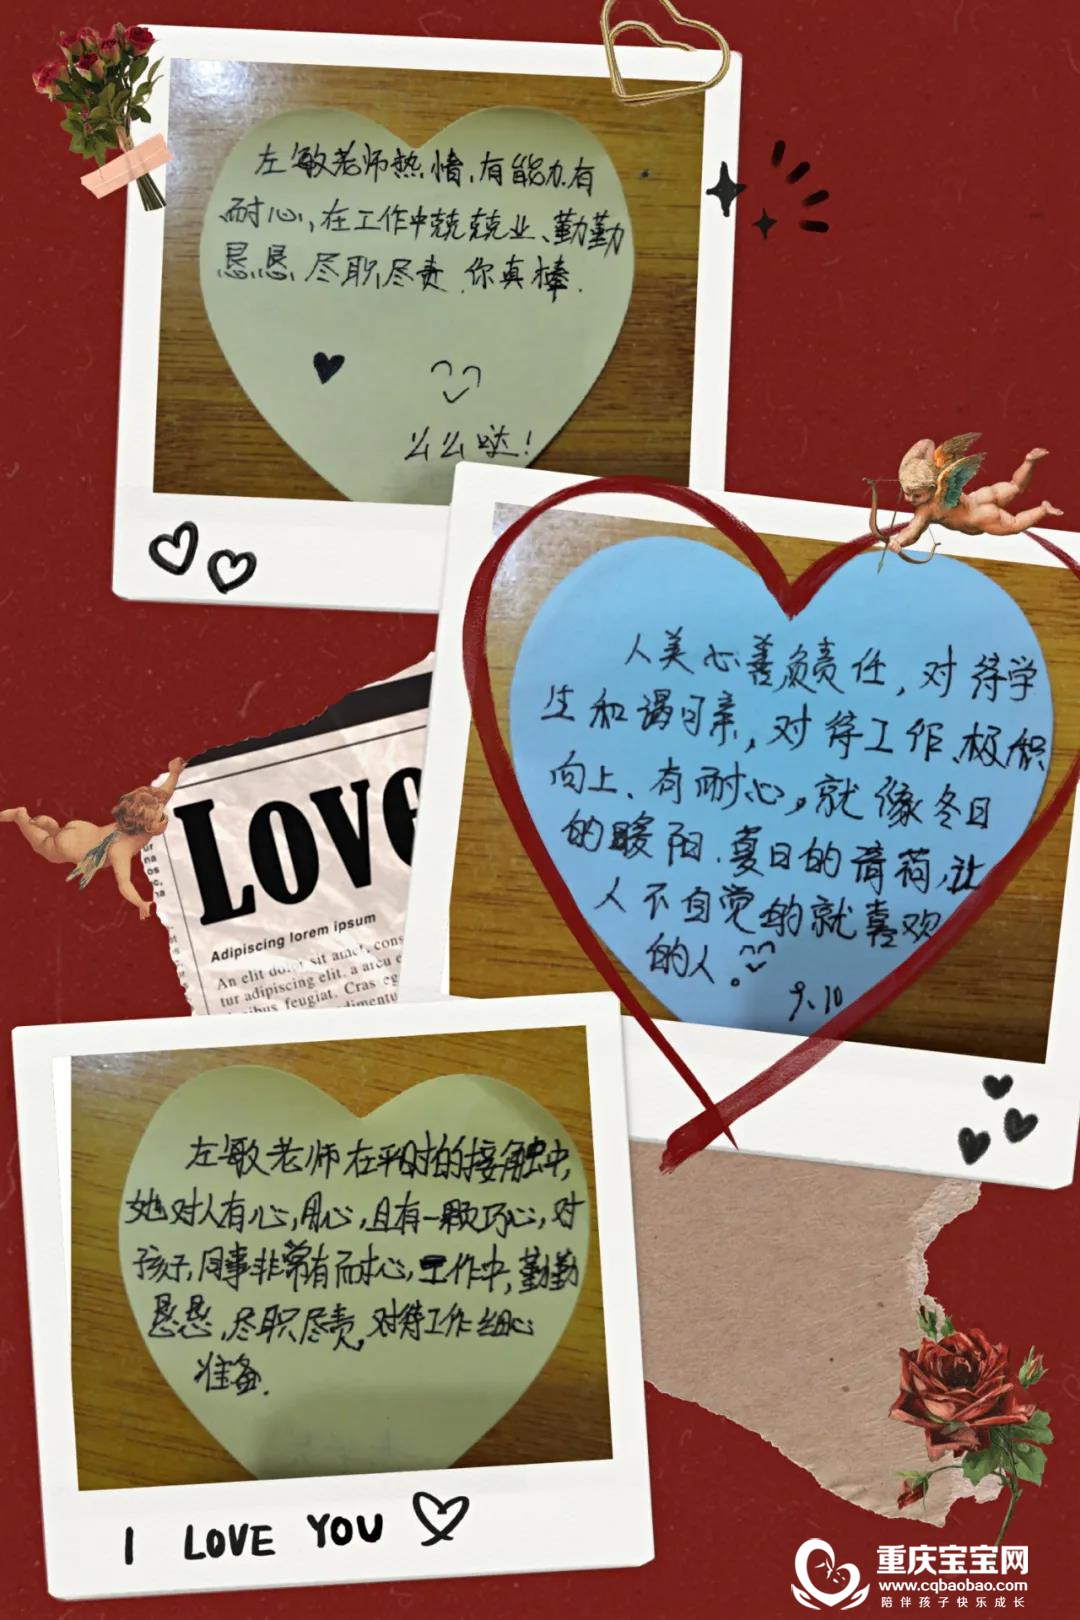 左敏老师热情,有能力.有
耐心,在工作中兢兢业、勤勤
恳恳、尽职尽责.你真棒.
么么哒!
人美心善负责任,对待学
生和谒可亲,对待工作、极积
向上、有耐心。就像冬日
的暖阳.夏日的清荷,让
人不自觉的就喜欢
的人。
9.10
Love
Adipiscing lorem ipsum
An elit dolor sit amet, cons
tur adipiscing elit. a arcu e
bus feugiat. Cras eg
dimentu
左敏老师在平时的接触中,
她对人有心,用心,且有一颗巧心,对
孩子,同事非常有耐心,工作中,勤勤
恳恳,尽职尽责,对待工作细心
准备.
I LOVE YOU
重庆宝宝网
www.cqbaobao.com
陪伴孩子快乐成长